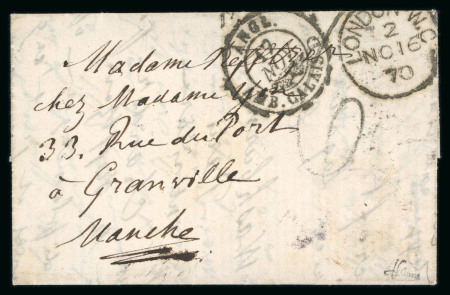 Madame
chez Madame
33. Rue du Port
à Granville
Manche
ANGL.
AMB. CALAIS
LONDON W.C
2
NO 16
70